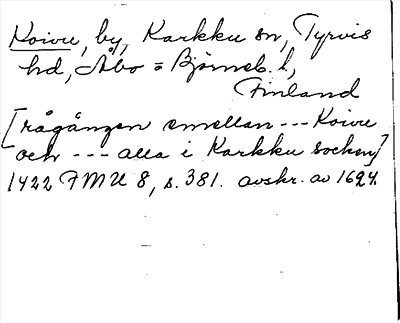 Koivu, by, Karkku sn, Tyrvis
hd, Åbo = Björneb. l,
Finland
[rågången emellan --- Koivu
och --- alla i Karkku socken]
1422 FMU 8, s. 381. avskr. av 1694.